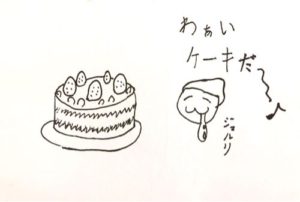 わぁい
ケーキだ〜♪
ジュルリ